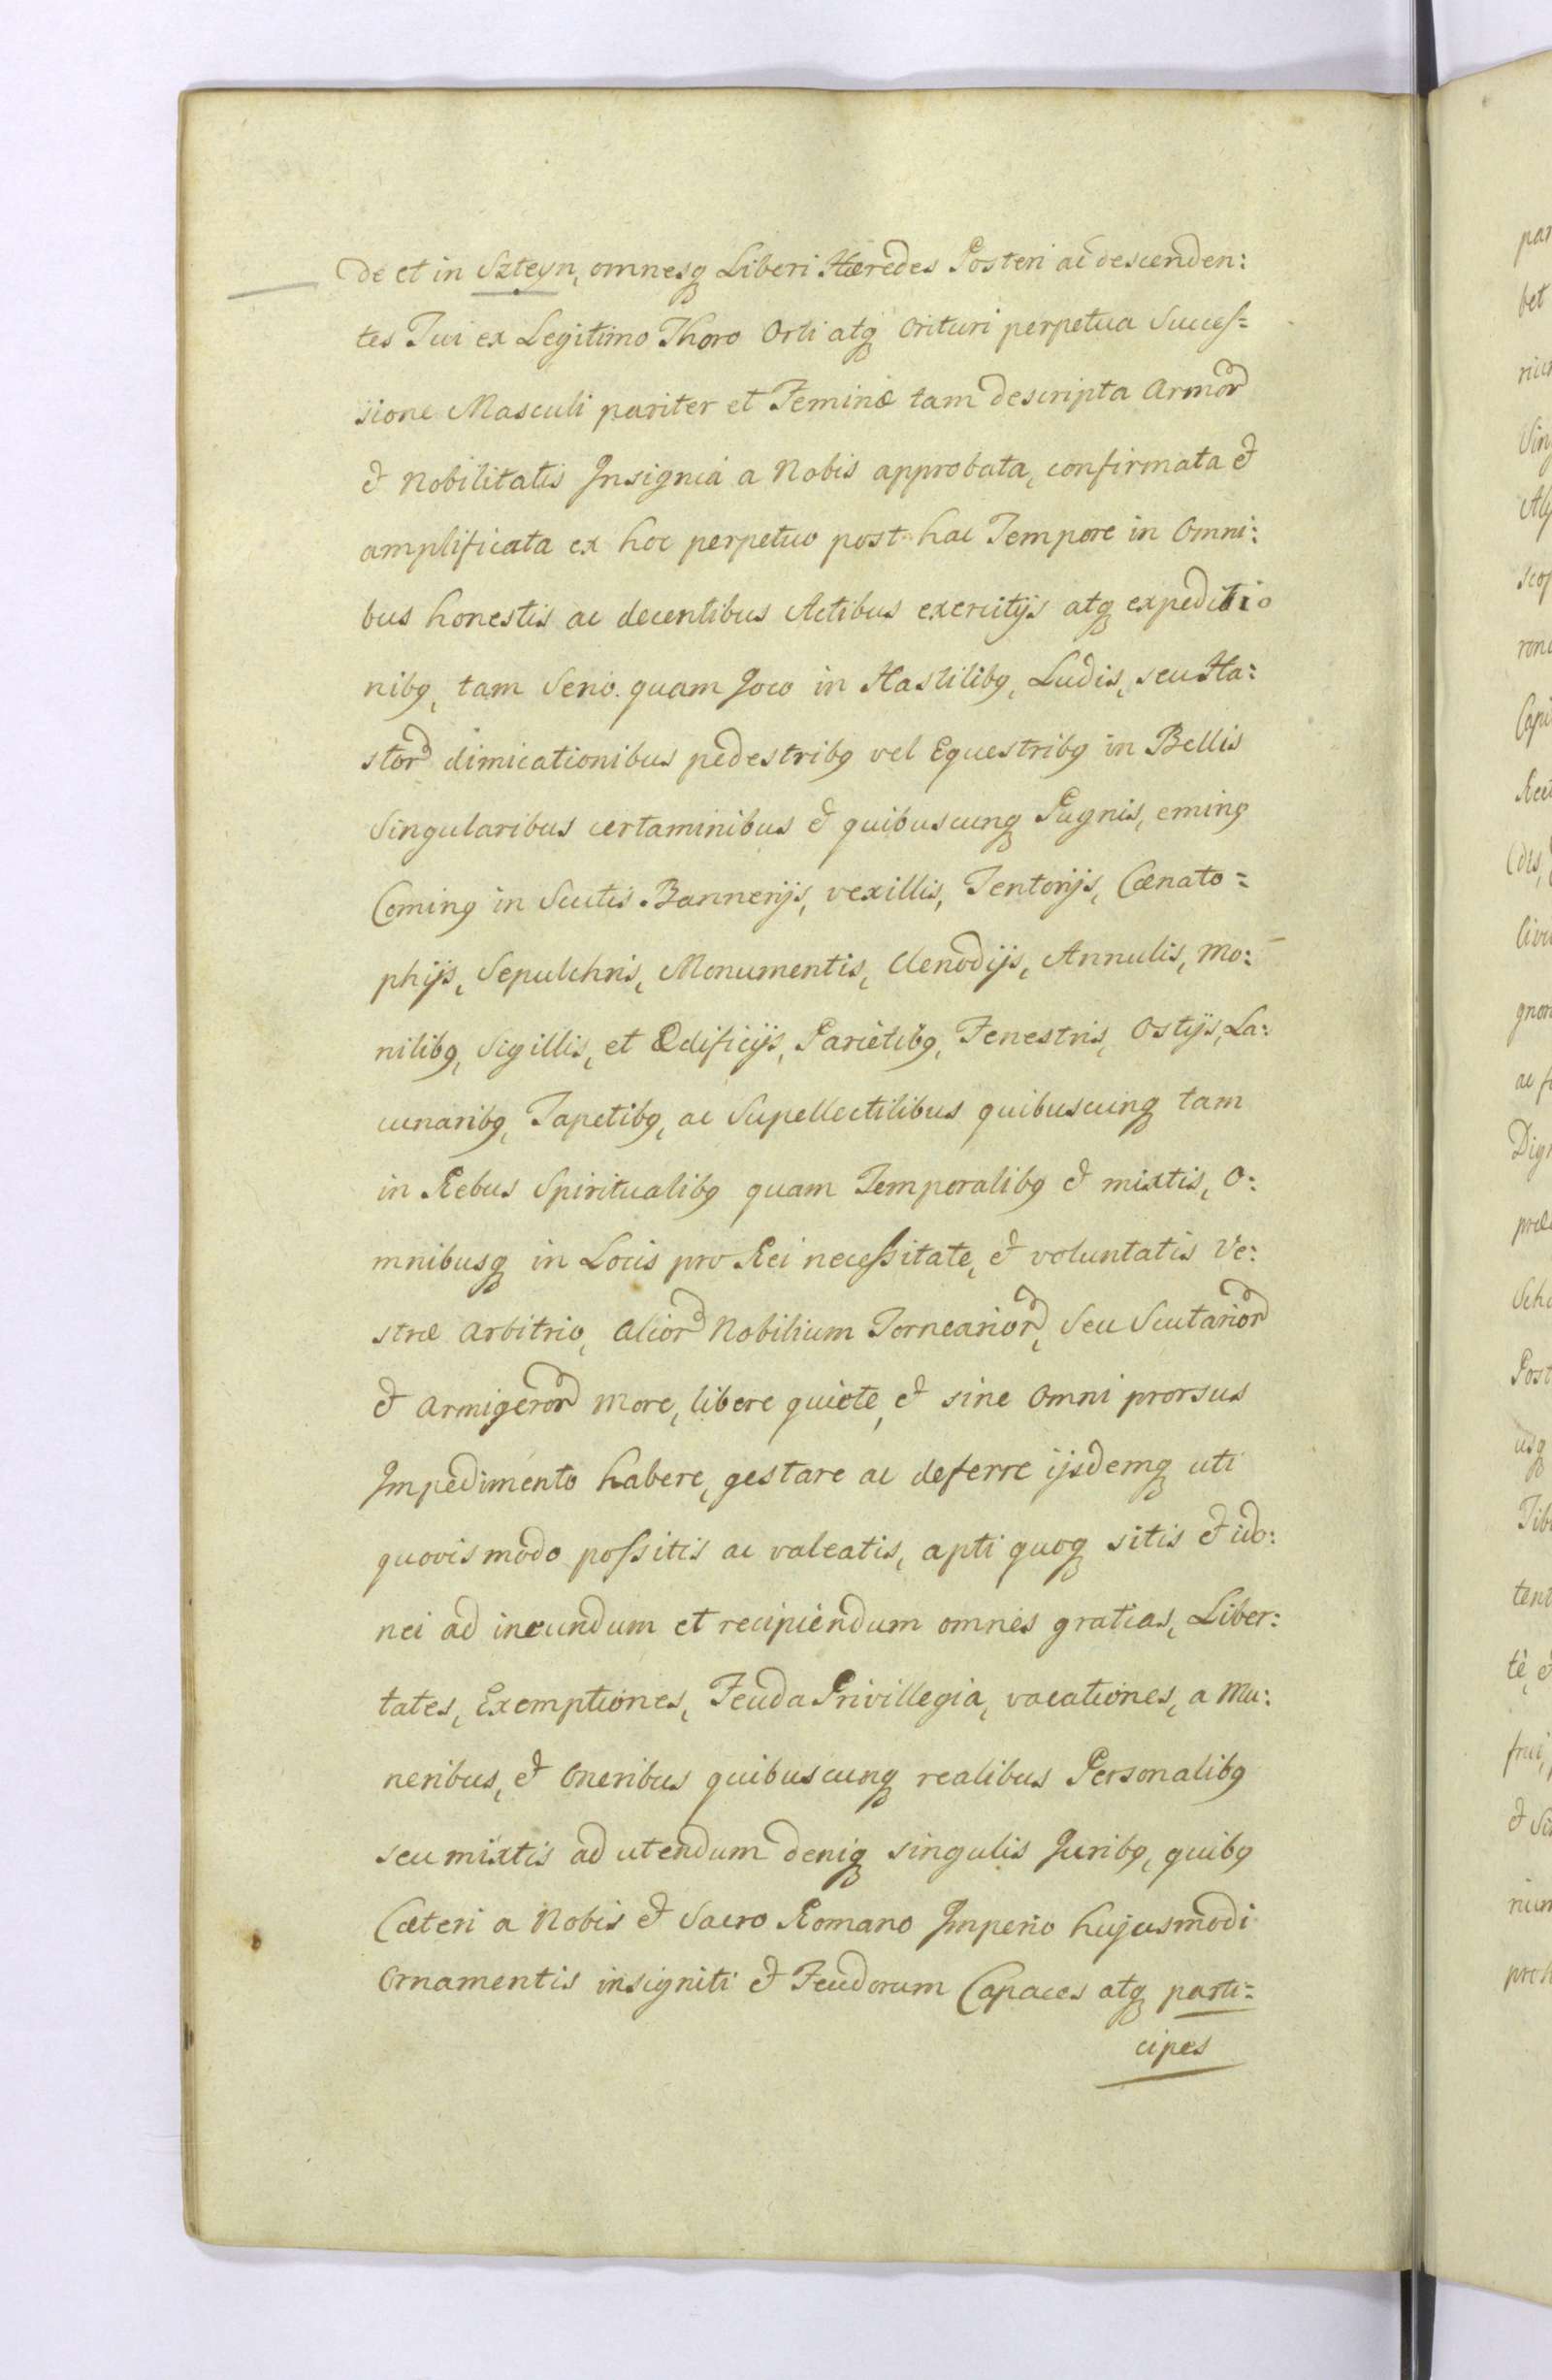 de et in Szteyn, omnesq Liberi Hæredes Posteri ac descenden:
tes Tui ex Legitimo Thoro Orti atq Orituri perpetua Succes=
sione Masculi pariter et Feminæ tam descripta Armor
& Nobilitatis Insignia a Nobis approbata, confirmata &
amplificata ex hoc perpetuo post hac Tempore in Omni:
bus honestis ac decentibus Actibus exercitijs atq expeditio
nibq, tam Serio quam Joco in Hastilibq, Ludis, seu Ha:
stor dimicationibus pedestribq vel Equestribq in Bellis
Singularibus certaminibus & quibuscunq Pugnis, eminq
Cominq in Scutis Bannerijs, vexillis, Tentorijs, Cænato=
phijs, Sepulchris, Monumentis, Clenodijs, Annulis, Mo:
nilibq, Sigillis, et Ædificijs, Parietibq, Fenestris, Ostijs, La:
cunaribq, Tapetibq, ac Supellectilibus quibuscunq tam
in Rebus Spiritualibq quam Temporalibq & mixtis, O:
mnibusq in Locis pro Rei necessitate, & voluntatis Ve:
stræ Arbitrio, Alior Nobilium Tornearior, Seu Scutarior
& Armigeror More, libere quiete, & sine Omni prorsus
Impedimento habere, gestare ac deferre ijsdemq uti
quovis modo possitis ac valeatis, apti quoq sitis & ido:
nei ad ineundum et recipiendum omnes gratias, Liber:
tates, Exemptiones, Feuda Privillegia, vacationes, a Mu:
neribus, & Oneribus quibuscunq realibus Personalibq
seu mixtis ad utendum deniq singulis Juribq, quibq
Cæteri a Nobis & Sacro Romano Imperio hujusmodi
Ornamentis insigniti & Feudorum Capaces atq parti=
cipes